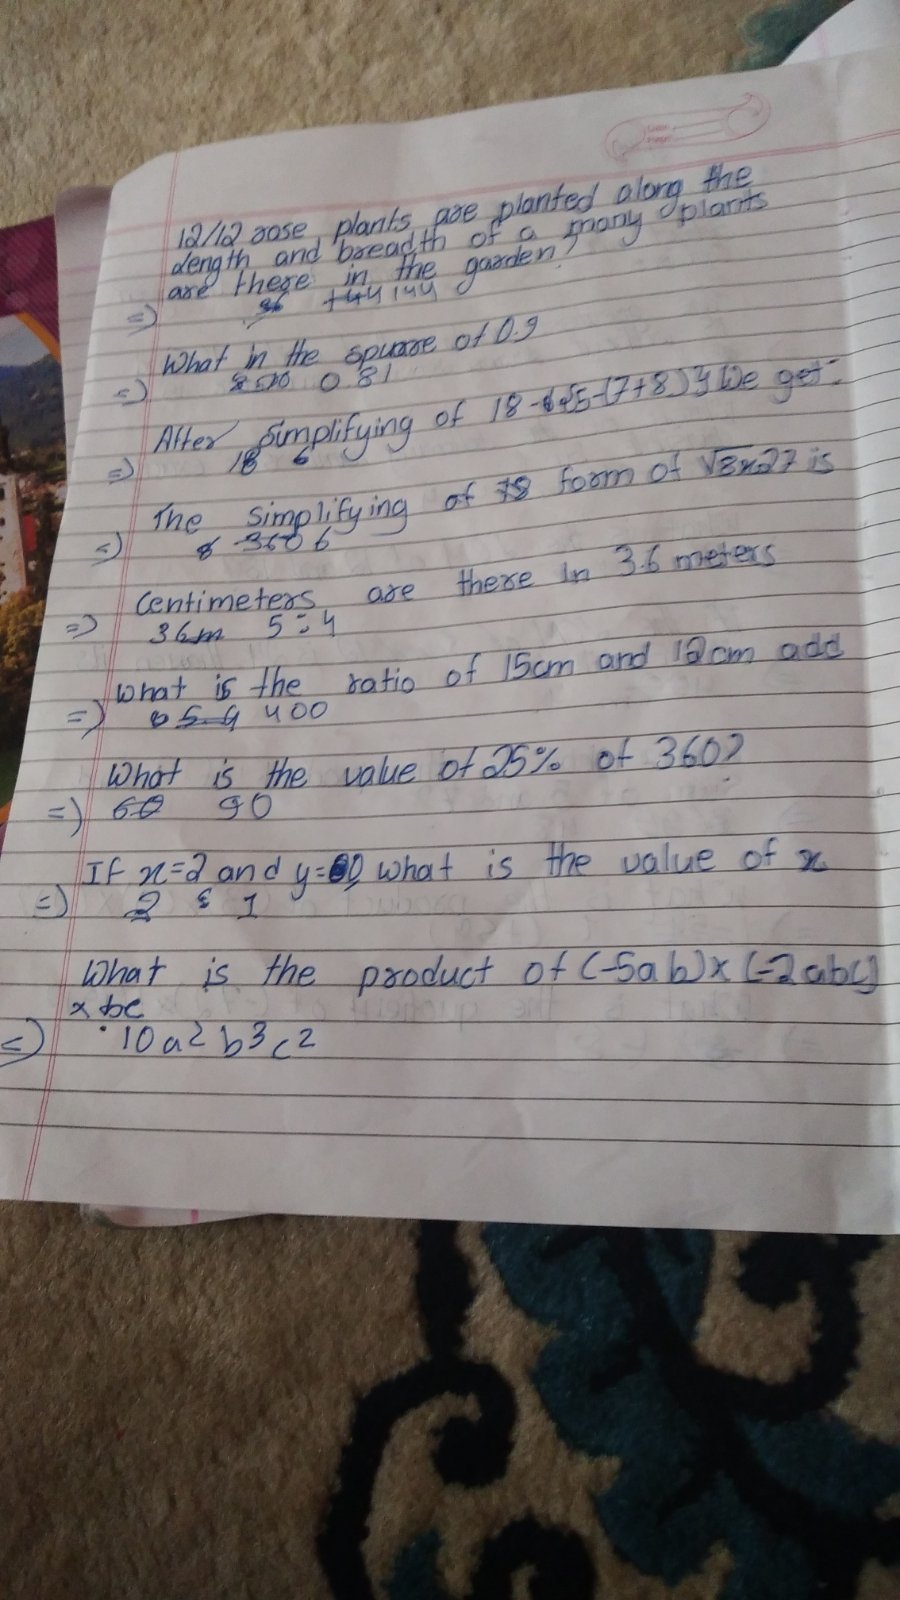 12/12 rose plants are planted along the
length and breadth of a many plants
are there in the garden?
=) 144
What in the square of 0.9
=) 0 81
After Simplifying of 18-{25-(7+8)} We get:
=) 18
The Simplifying of form of √3x27 is
=) 3606
Centimeters are there in 3.6 meters
=) 36m 5:4
What is the ratio of 15cm and 12cm add
=) 5 4 400
What is the value of 25% of 360?
=) 60 90
If x=2 and y= what is the value of x
=) 2 1
What is the product of (-5ab)x(-2abc)
x bc
=) 10a2b3c2